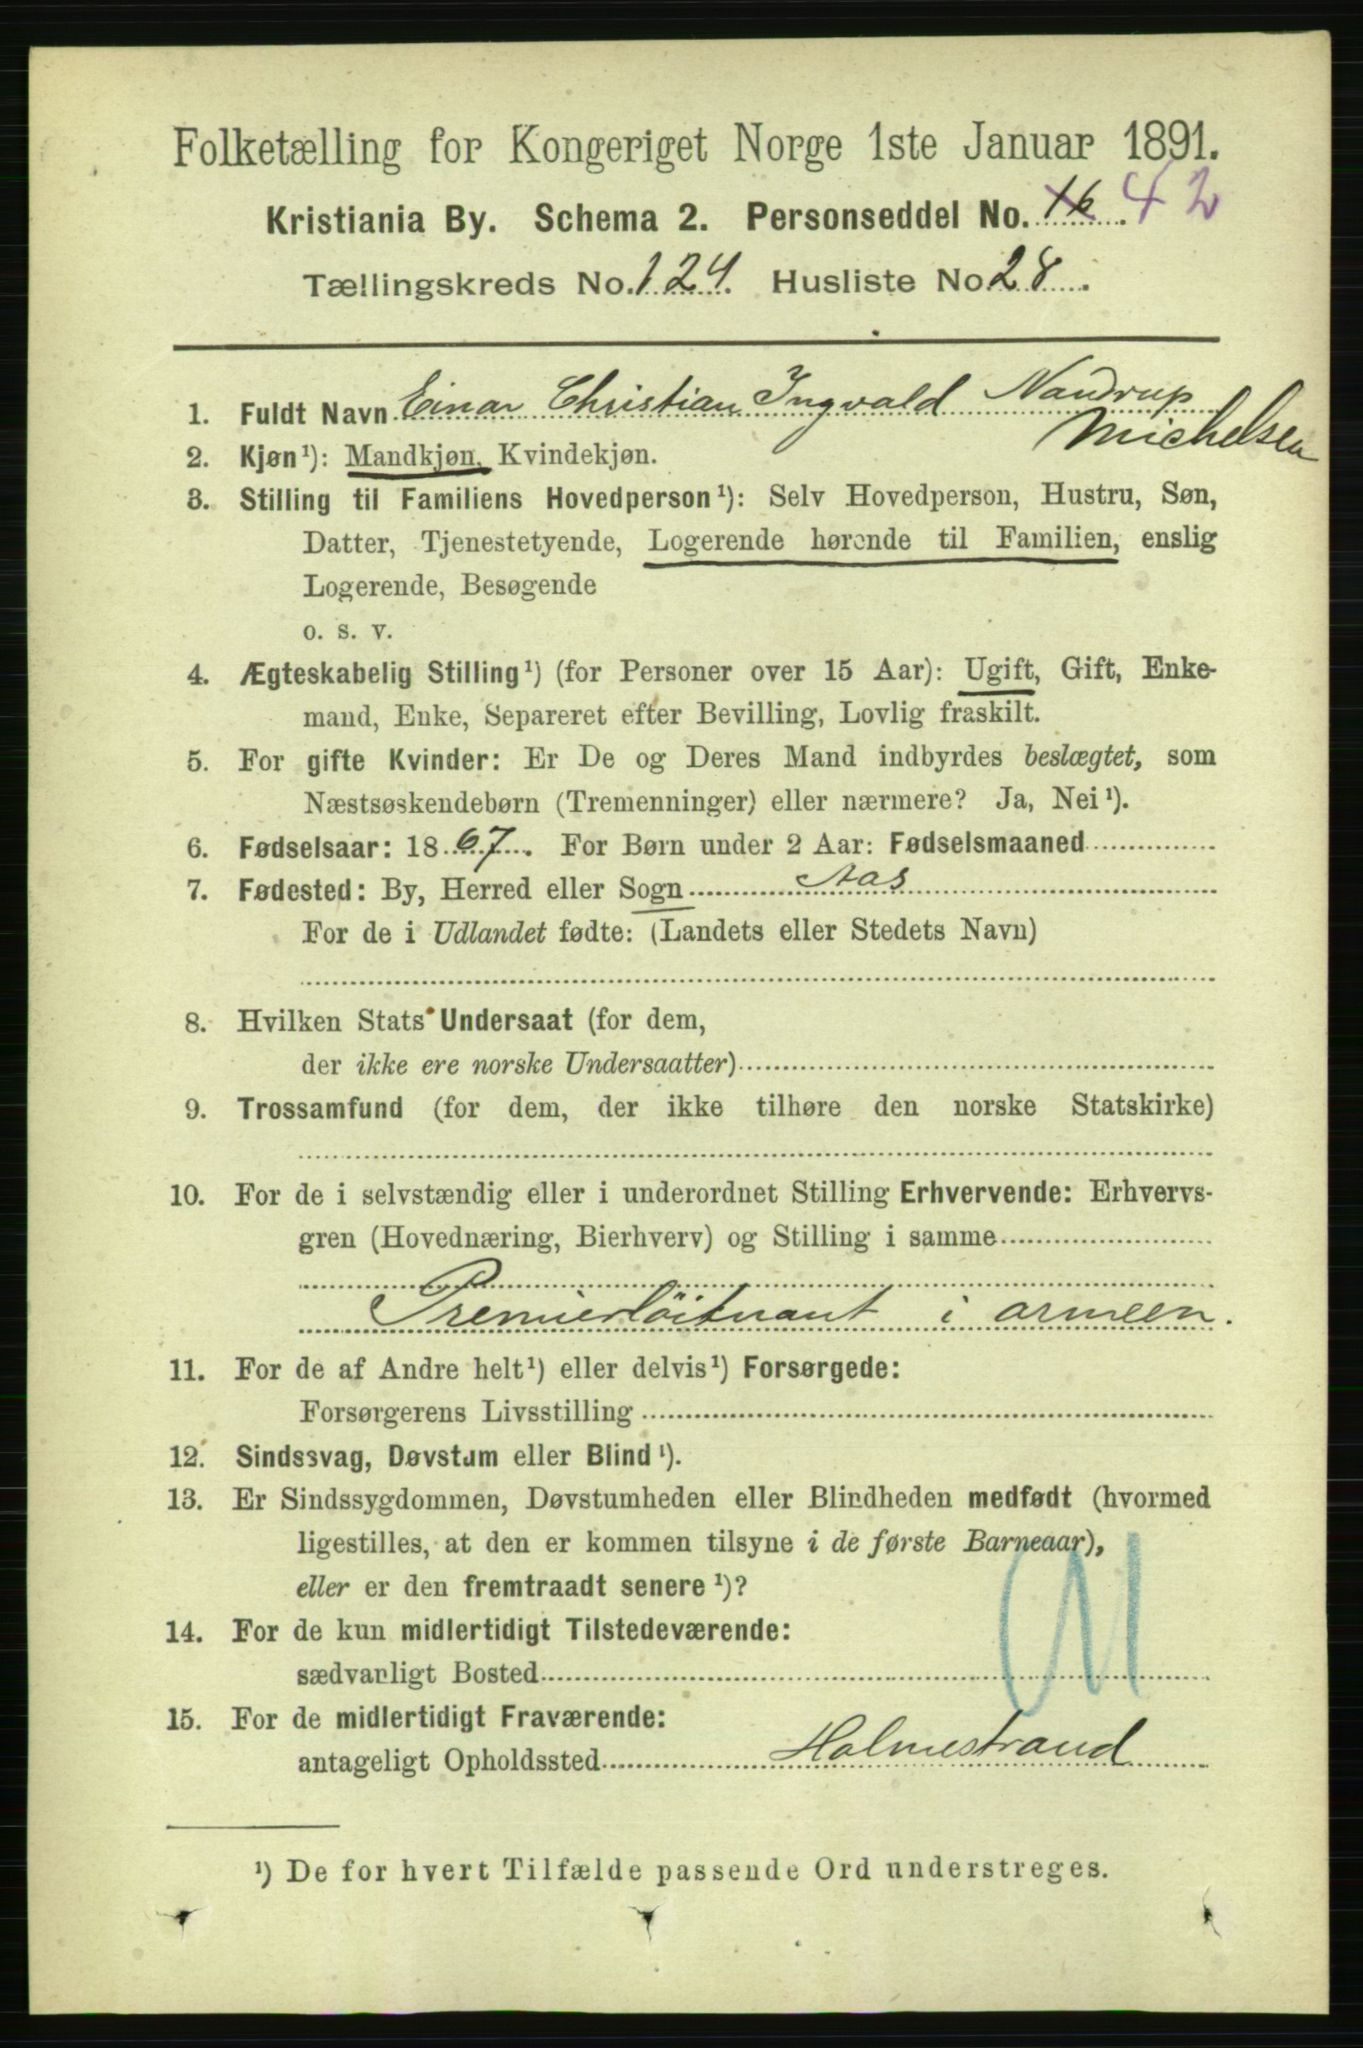 Folketælling for Kongeriget Norge 1ste Januar 1891.
Kristiania By. Schema 2. Personseddel No. 16. 42
Tællingskreds No. 124. Husliste No 28.
1. Fuldt Navn Einar Christian Ingvald Nandrup
Michelsen
2. Kjøn¹): Mandkjøn, Kvindekjøn.
3. Stilling til Familiens Hovedperson¹): Selv Hovedperson, Hustru, Søn,
Datter, Tjenestetyende, Logerende hørende til Familien, enslig
Logerende, Besøgende
o. s. v.
4. Ægteskabelig Stilling¹) (for Personer over 15 Aar): Ugift, Gift, Enke-
mand, Enke, Separeret efter Bevilling, Lovlig fraskilt.
5. For gifte Kvinder: Er De og Deres Mand indbyrdes beslægtet, som
Næstsøskendebørn (Tremenninger) eller nærmere? Ja, Nei¹).
6. Fødselsaar: 1867. For Børn under 2 Aar: Fødselsmaaned
7. Fødested: By, Herred eller Sogn Aas
For de i Udlandet fødte: (Landets eller Stedets Navn)
8. Hvilken Stats Undersaat (for dem,
der ikke ere norske Undersaatter)
9. Trossamfund (for dem, der ikke tilhøre den norske Statskirke)
10. For de i selvstændig eller i underordnet Stilling Erhvervende: Erhvervs-
gren (Hovednæring, Bierhverv) og Stilling i samme
Premierløitnant i armeen.
11. For de af Andre helt¹) eller delvis¹) Forsørgede:
Forsørgerens Livsstilling
12. Sindssvag, Døvstum eller Blind¹).
13. Er Sindssygdommen, Døvstumheden eller Blindheden medfødt (hvormed
ligestilles, at den er kommen tilsyne i de første Barneaar),
eller er den fremtraadt senere¹)?
14. For de kun midlertidigt Tilstedeværende:
sædvanligt Bosted
15. For de midlertidigt Fraværende:
antageligt Opholdssted Holmestrand
¹) De for hvert Tilfælde passende Ord understreges.